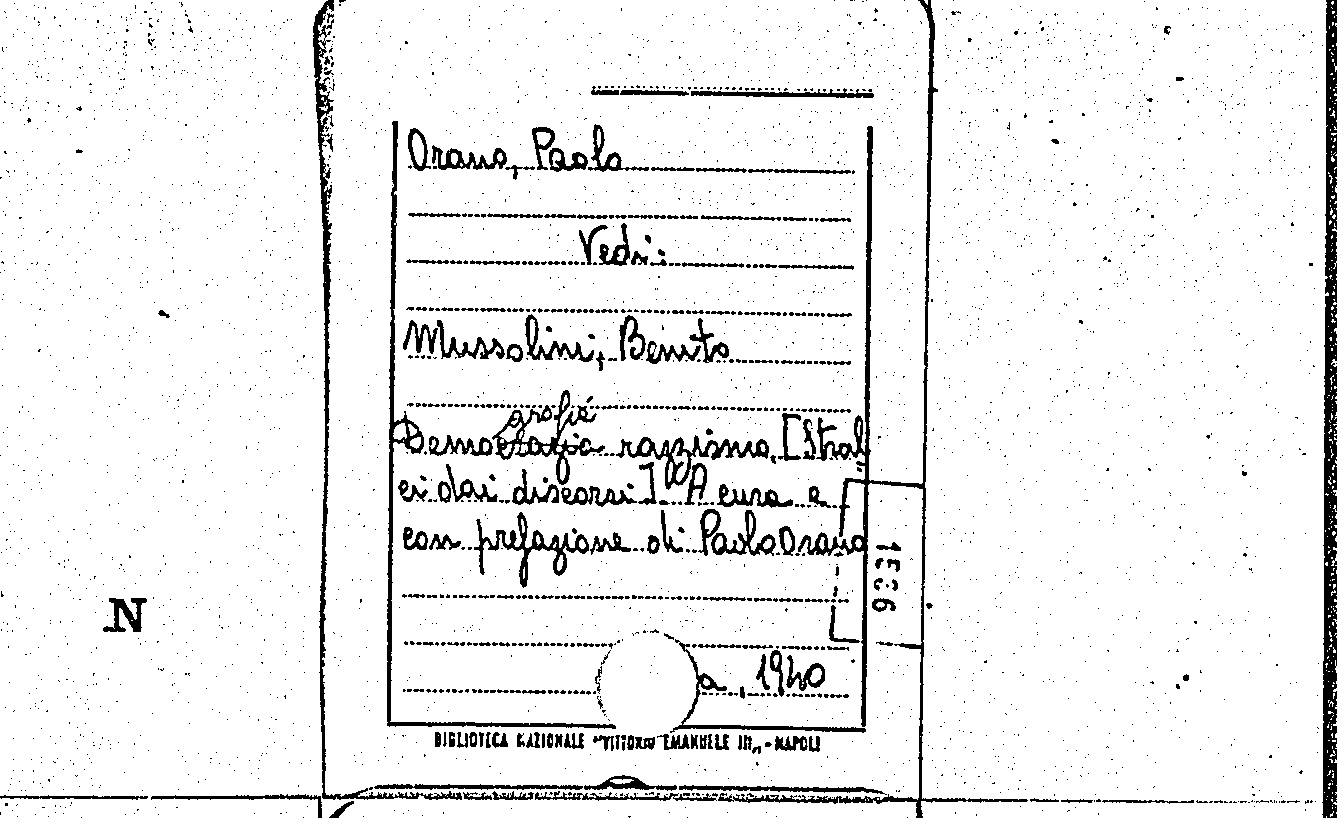 Orano, Paolo
Vedi:
Mussolini, Benito
grafia
Demo razzismo. [Stral=
ci dai discorsi]. A cura e
con prefazione di Paolo Orano
1536
N
a, 1940
BIBLIOTECA NAZIONALE "VITTORIO EMANUELE III" - NAPOLI